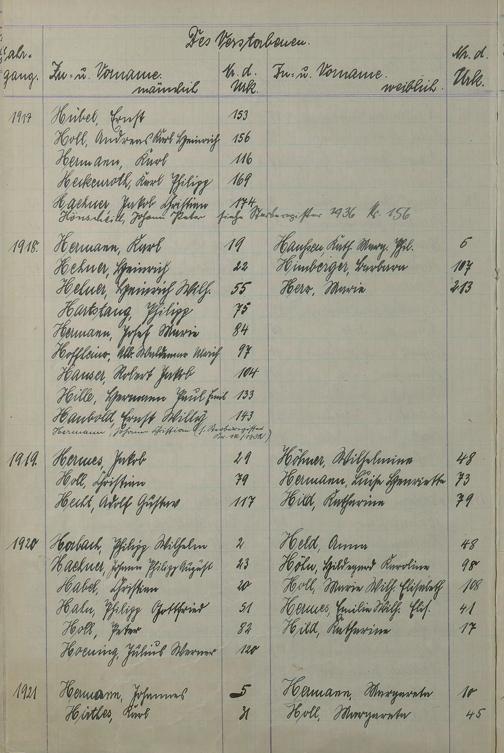 Des Verstorbenen.
Jahr-
gang. Zu- u. Vorname. männlich Nr. d. Urk. Zu- u. Vorname. weiblich. Nr. d. Urk.
1917 Hübel, Ernst 153
Holl, Andreas Karl Heinrich 156
Hermann, Karl 116
Heckenroth, Karl Philipp 169
Haxner, Jakob Christian 174
Johann Peter siehe Sterberegister 1936 Nr. 156
1918. Hermann, Karl 19 Kath. Marg. Phil. 6
Hehner, Heinrich 22 Himberger, Barbara 107
Hehner, Heinrich Wilh. 55 Herr, Marie 213
Hartstang, Philipp 75
Hermann, Josef Marie 84
Alb. Waldemar Ulrich 97
Hauser, Robert Jakob 104
Hille, Hermann Paul Emil 133
Haubold, Ernst Willy 143
Hermann, Johann Christian (s. Sterberegister
1919. Hermes, Jakob 29 Höhner, Wilhelmine 48
Holl, Christian 79 Hermann, Luise Henriette 73
Hecht, Adolf Gustav 117 Hild, Katharine 79
1920 Herbach, Philipp Wilhelm 2 Held, Anna 48
Haxner, Johann Philipp August 23 Höhn, Hildegard Karoline 98
Habel, Christian 20 Holl, Marie Wilh. Elisabeth 108
Hahn, Philipp Gottfried 51 Hermes, Emilie Wilh. Elis. 41
Holl, Peter 82 Hild, Katharine 17
Hoening, Julius Werner 120
1921 Hermann, Johannes 5 Hermann, Margareta 10
Hirtes, Karl 31 Holl, Margareta 45